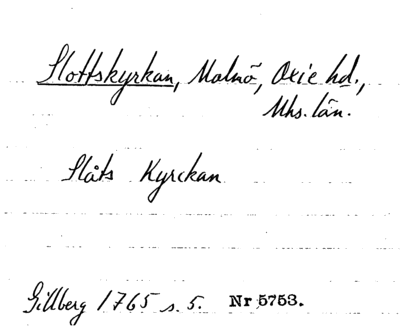 Slottskyrkan, Malmö, Oxie hd.,
Mhs. län.
Slåts Kyrckan
Gillberg 1765 s. 5. Nr 5753.